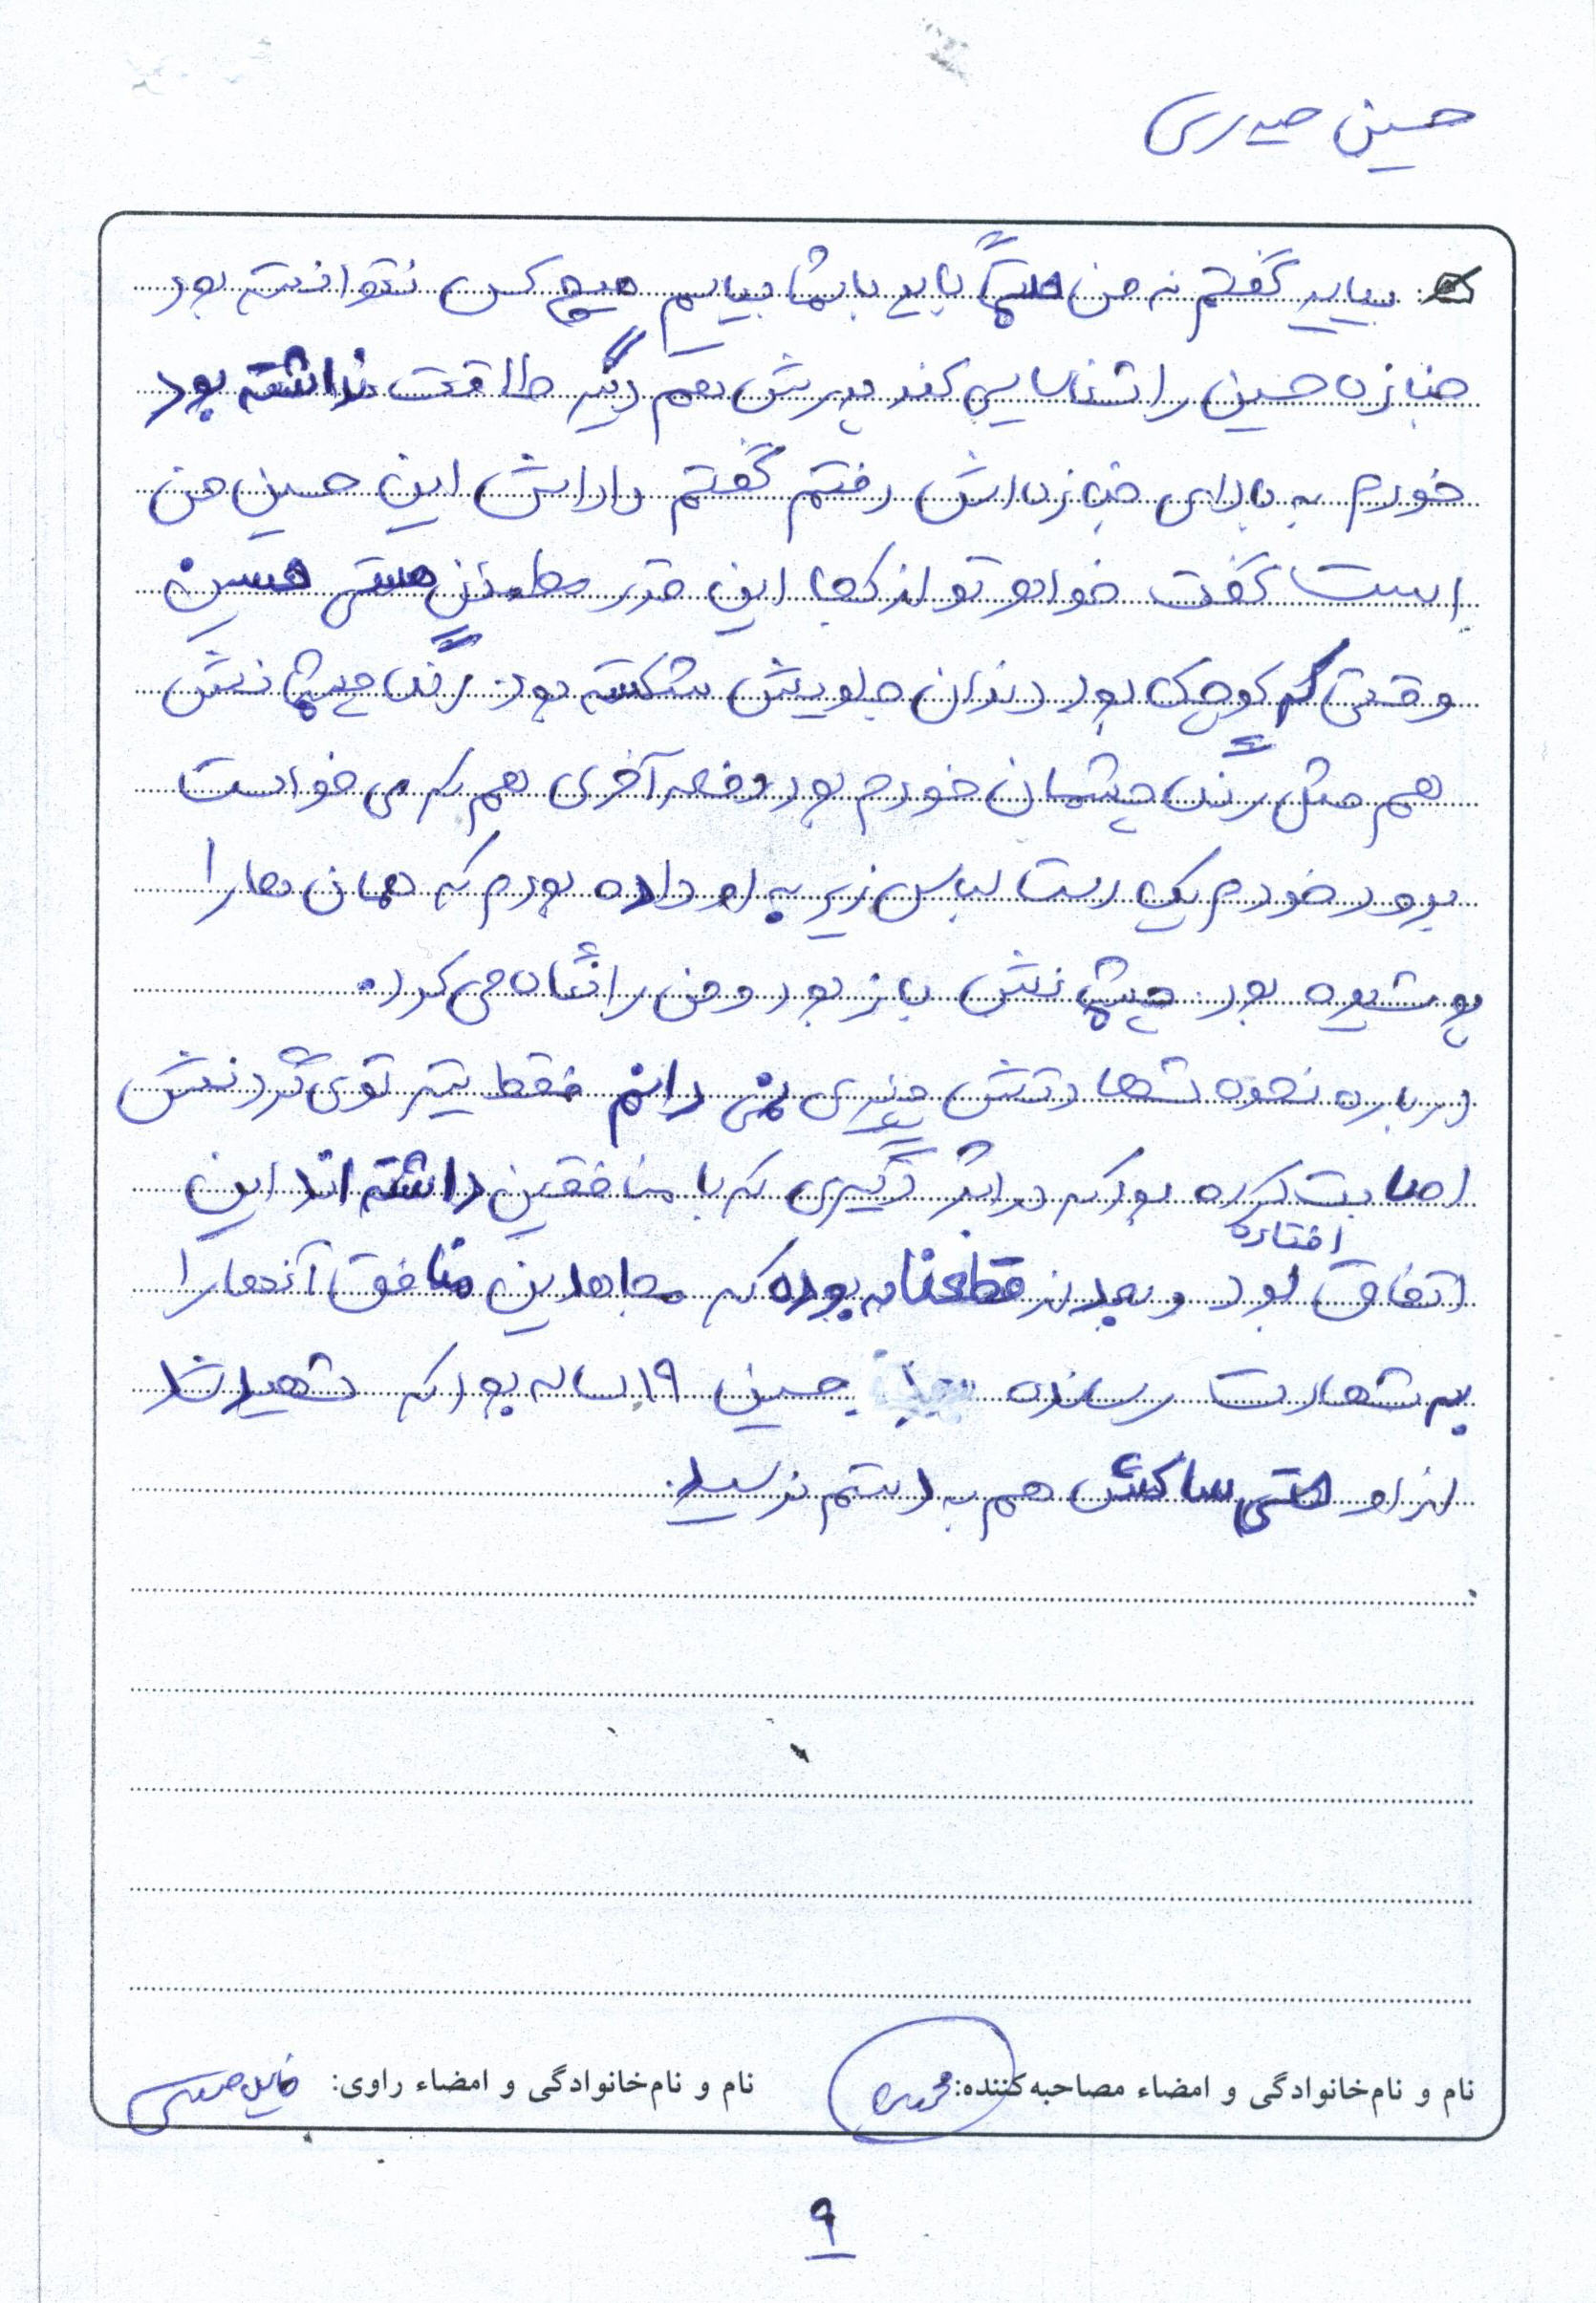 حسین حیدری
بیاید گفتم نه من حتماً باید با شما بیایم هیچ کس نتوانسته بود
جنازه حسین را شناسایی کند پدرش هم دیگه طاقت نداشته بود
خودم به بالای جنازه‌اش رفتم گفتم داداش این حسین من
است گفت خواهر تو از کجا این قدر مطمئن هستی حسین
وقتی که کوچک بود دندان جلویش شکسته بود. رنگ چشمانش
هم مثل رنگ چشمان خودم بود دفعه آخری هم که می خواست
برود خودم یک دست لباس زیر به او داده بودم که همان ها را
پوشیده بود. چشمانش باز بود و من را نگاه می کرد.
درباره نحوه شهادتش چیزی نمی دانم فقط تیر توی گردنش
اصابت کرده بود که در اثر درگیری که با منافقین داشته اند این
اتفاق افتاده بود و بعد از قطعنامه بوده که مجاهدین منافق آنها را
به شهادت رسانده حسین ۱۹ ساله بود که شهید شد
از او حتی ساکش هم به دستم نرسید.
نام و نام‌خانوادگی و امضاء مصاحبه‌کننده:
نام و نام‌خانوادگی و امضاء راوی:
۹